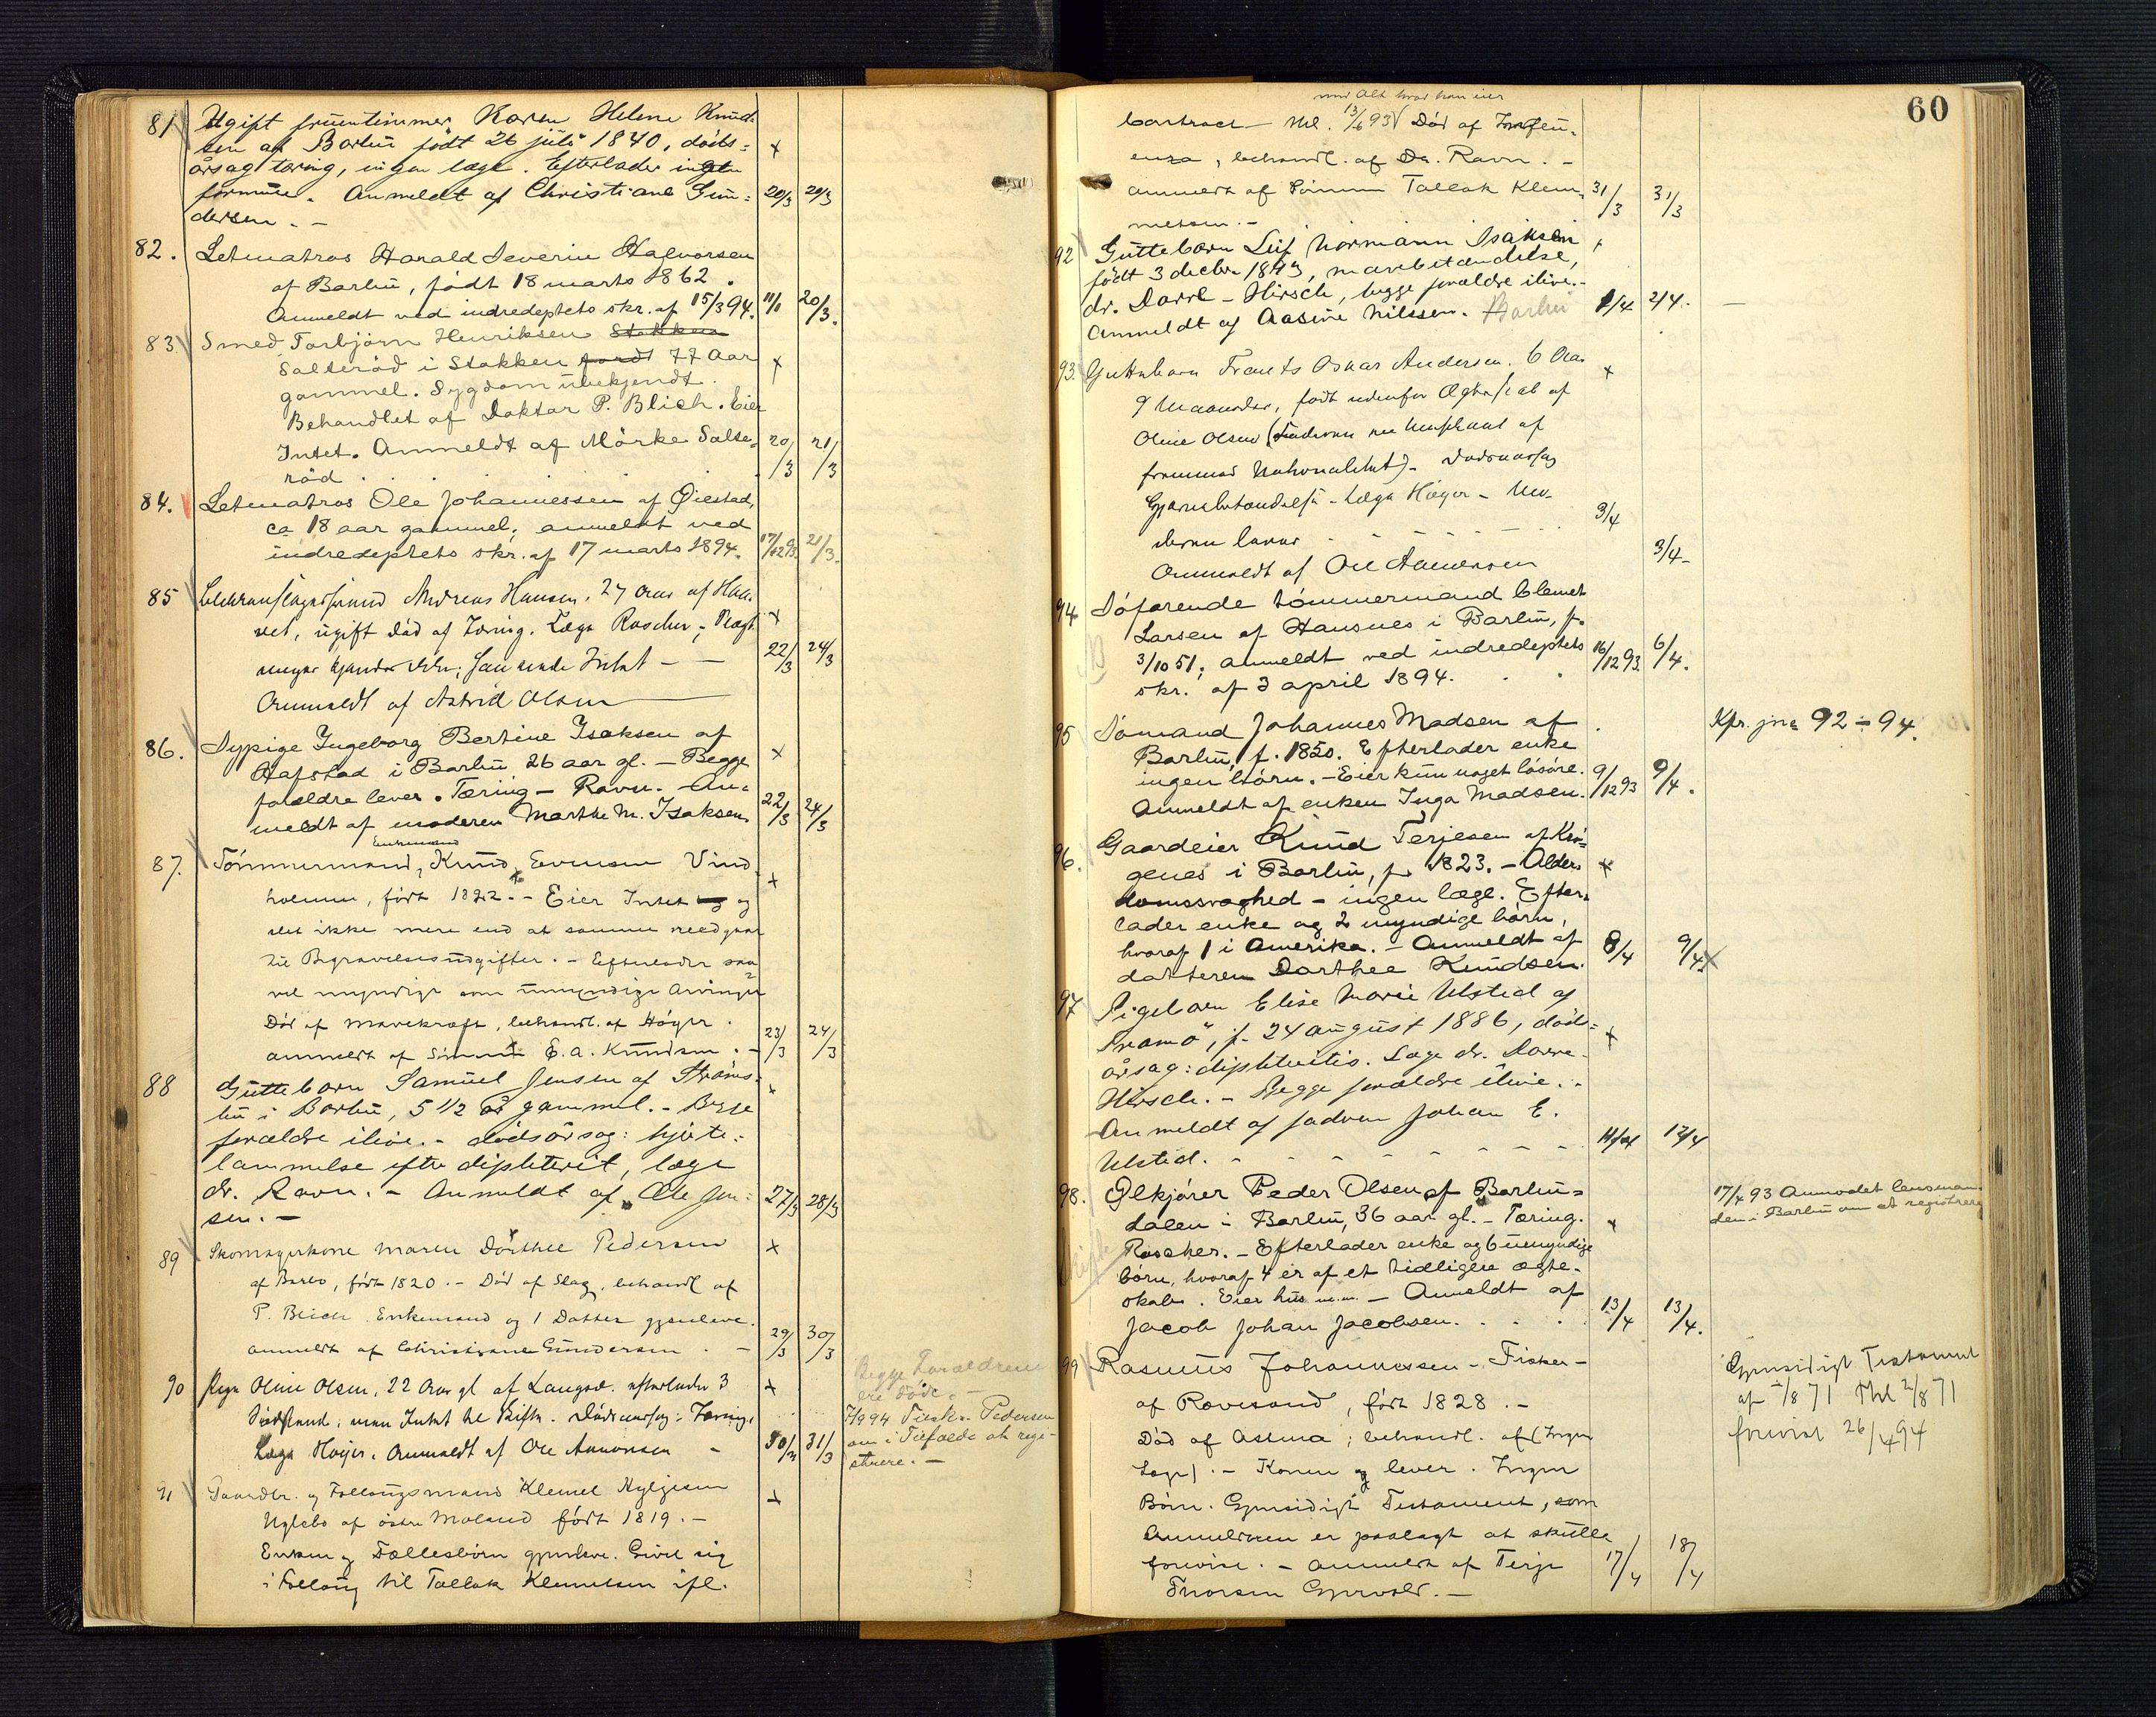 81 Ugift fruentimmer Karen Helene Knud-
sen af Barbu født 26 juli 1840, døds-
årsag tæring, ingen læge. Efterlader ingen
formue. Anmeldt af Christiane Gun- 20/3 20/3
dersen. -
82. Letmatros Harald Severin Halvorsen
af Barbu, født 18 marts 1862.
Anmeldt ved indredeptets skr. af 15/3 94. 11/1 20/3.
83. Smed Torbjörn Henriksen Stokken
Salteröd i Stokken født 77 Aar
gammel. Sygdom ubekjendt.
Behandlet af Doktor P. Blich. Eier
Intet. Anmeldt af Mörke Salte- 20/3 21/3
röd
84. Letmatros Ole Johannessen af Øiestad,
ca 18 aar gammel; anmeldt ved
indredeptets skr. af 17 marts 1894. 17/12 93 21/3.
85 Andreas Hansen, 27 Aar af Haa-
vet, ugift død af Tæring. Læge Roscher;
22/3 24/3
Anmeldt af Astrid Olsen
86. Sypige Ingeborg Bertine Isaksen af
Hafstad i Barbu 26 aar gl. - Begge
forældre lever. Tæring - Ravn. An-
meldt af moderen Marthe M. Isaksen 22/3 24/3
Enkemand
87. Tömmermand, Knud Evensen Vind
holmen, født 1822. - Eier Intet og og
det ikke mere end at samme medgaar
til Begravelsesudgifter. - Efterlader saa
vel myndige som umyndige Arvinger
Död af Mavekræft, behandl. af Höyer.
anmeldt af Sönnen E. A. Knudsen. - 23/3 24/3
88 Guttebarn Samuel Jensen af Ströms-
bu i Barbu, 5 1/2 år gammel. - Begge
forældre ilive. - dødsårsag: hjerte-
lammelse efter difterit, læge
dr. Ravn. - Anmeldt af Ole Jen- 27/3 28/3
sen. -
89 Skomagerkone Maren Dorthee Pedersen
af Barbo, født 1820. - Död af Slag, behandl af
P. Blich. Enkemand og 1 Datter gjenleve.
anmeldt af Christiane Gundersen. - 29/3 30/3
90 Pige Oline Olsen, 22 Aar gl af Langsæ. efterlader 3
Sødskend; men Intet til Skifte. Dødsaarsag: Tæring.
Læge Höyer. Anmeldt af Ole Aanonsen - 30/3 31/3
Begge Forældrene
ere döde. -
7/9 94 Pedersen
om i Tilfælde at regi-
strere. -
91 Gaardbr. og Follaugsmand Klemet
Uglebo af östre Moland født 1819. -
Enken og Fællesbörn gjenleve. Givet sig
i Follaug til Tallak Klemetsen ifl.
60
med Alt hvad han eier
Contract thl. 13/6 93 Död af Influ-
enza, behandl. af Dr. Ravn. -
anmeldt af Sönnen Tallak Klem- 31/3 31/3
metsen. -
92 Guttebarn Leif Normann Isaksen
født 3 decbr 1893, mavebetændelse,
dr. Dorre-Hirsch, begge forældre ilive. -
Anmeldt af Aasine Nilssen. Barbu 2/4 2/4.
93. Guttebarn Frants Oskar Andersen. 6 Aar
9 Maaneder, født udenfor Ægteskab af
Oline Olsen (Faderen
fremmed Nationalitet). Dødsaarsag
Hjernebetændelse - Læge Höyer - Mo-
deren lever 3/4
Anmeldt af Ole Aanonsen 3/4
94. Söfarende tömmermand Clemet
Larsen af Hansnes i Barbu, f.
3/10 51; anmeldt ved indredeptets 16/12 93 6/4.
skr. af 3 april 1894.
95 Sömand Johannes Madsen af
Barbu, f. 1850. Efterlader enke
ingen börn. - Eier kun noget lösöre.
Anmeldt af enken Inga Madsen. 9/12 93 9/4.
Kfr. jn= 92 - 94.
96. Gaardeier Knud Terjesen af Krö-
genes i Barbu, f. 1823. - Alder-
domssvaghed - ingen læge. Efter-
lader enke og 2 myndige börn,
hvoraf 1 i Amerika. - Anmeldt af 8/4 9/4
datteren Dorthee Knudsen.
97 Pigebarn Elise Marie Ulsted af
Tromö, f. 24 august 1886, döds-
årsag: diphteritis. Læge dr. Dorre-
Hirsch. - Begge forældre ilive. -
Anmeldt af faderen Johan E.
Ulsted. 11/4 12/4
98. Ølkjörer Peder Olsen af Barbu-
dalen i Barbu, 36 aar gl. - Tæring.
Roscher. - Efterlader enke og 6 umyndige
börn, hvoraf 4 er af et tidligere ægte-
skab. Eier hus m.m. - Anmeldt af
Jacob Johan Jacobsen. 13/4 13/4.
17/4 93 Anmodet lensman-
den i Barbu om at registrere
99 Rasmus Johannessen - Fisker -
af Rævesand, født 1828. -
Död af Astma; behandl. af (Ingen
Læge). - Konen lever. Ingen
Börn. Gjensidigt Testament, som
Anmelderen er paalagt at skulle
forevise. - anmeldt af Terje 17/4 18/4
Thorsen Gjervold. -
Gjensidigt Testament
af 2/8 71 Thl 2/8 71
forevist 26/4 94